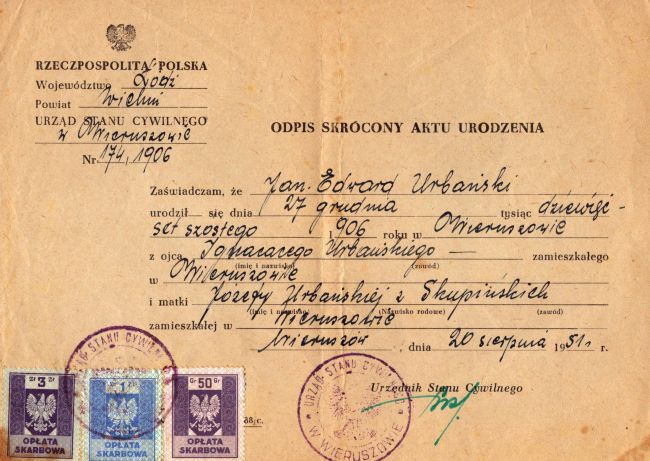 RZECZPOSPOLITA POLSKA
Województwo Łódź
Powiat Wieluń
URZĄD STANU CYWILNEGO
w Wieruszowie
Nr. 174, 1906
ODPIS SKRÓCONY AKTU URODZENIA
Zaświadczam, że Jan Edward Urbański
urodził się dnia 27 grudnia tysiąc dziewięć-
set szóstego 1906 roku w Wieruszowie
z ojca Ignacacego Urbańskiego — zamieszkałego
(imię i nazwisko) (zawód)
w Wieruszowie
i matki Józefy Urbańskiej z Skupińskich
(imię i nazwisko) (Nazwisko rodowe) (zawód)
zamieszkałej w Wieruszowie
Wieruszów, dnia 20 sierpnia 1951 r.
Urzędnik Stanu Cywilnego
URZĄD STANU CYWILNEGO
Zł 3 Zł
OPŁATA
SKARBOWA
1
OPŁATA
SKARBOWA
Gr 50 Gr
OPŁATA
SKARBOWA
88jc.
URZĄD STANU CYWILNEGO
W WIERUSZOWIE